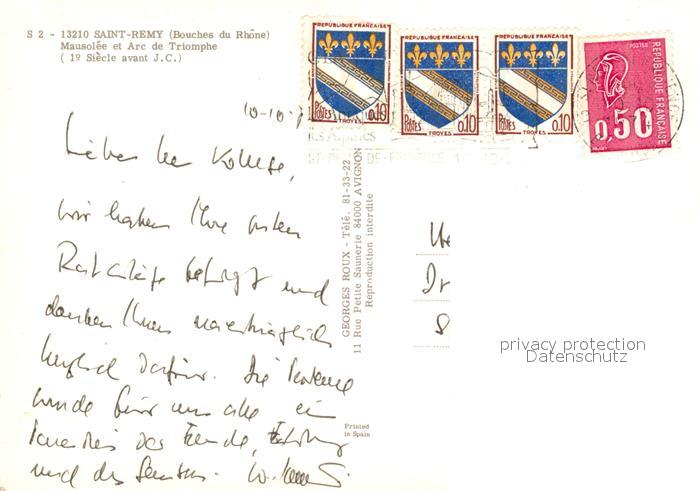 S 2 - 13210 SAINT-REMY (Bouches du Rhône)
Mausolée et Arc de Triomphe
( 1º Siècle avant J.C.)
REPUBLIQUE FRANÇAISE
Postes 0,10
TROYES
REPUBLIQUE FRANÇAISE
Postes 0,10
TROYES
REPUBLIQUE FRANÇAISE
Postes 0,10
TROYES
POSTES
REPUBLIQUE FRANÇAISE
0,50
10-10-
Lieber Herr Kollege,
wir haben Ihre guten
Ratschläge befolgt und
danken Ihnen nachträglich
herzlich dafür. Die Provence
wurde für uns alle ein
Paradies der Freude,
und des Genusses. W.
GEORGES ROUX - Télé. 81-33-22
11 Rue Petite Saunerie 84000 AVIGNON
Reproduction interdite
Printed
in Spain
He
Dr
S
privacy protection
Datenschutz